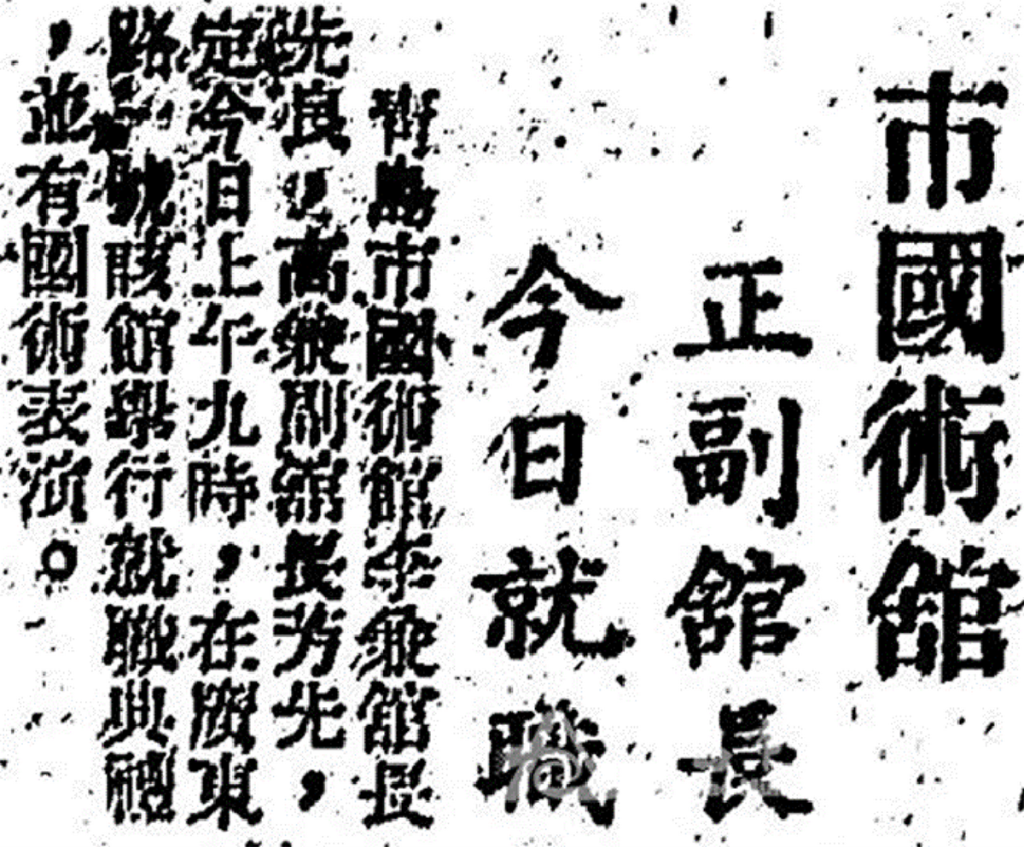 市國術館
正副館長
今日就職
青島市國術館李兼館長
先良，高兼副館長芳先，
定今日上午九時，在廣東
路一號該館舉行就職典禮
，並有國術表演。